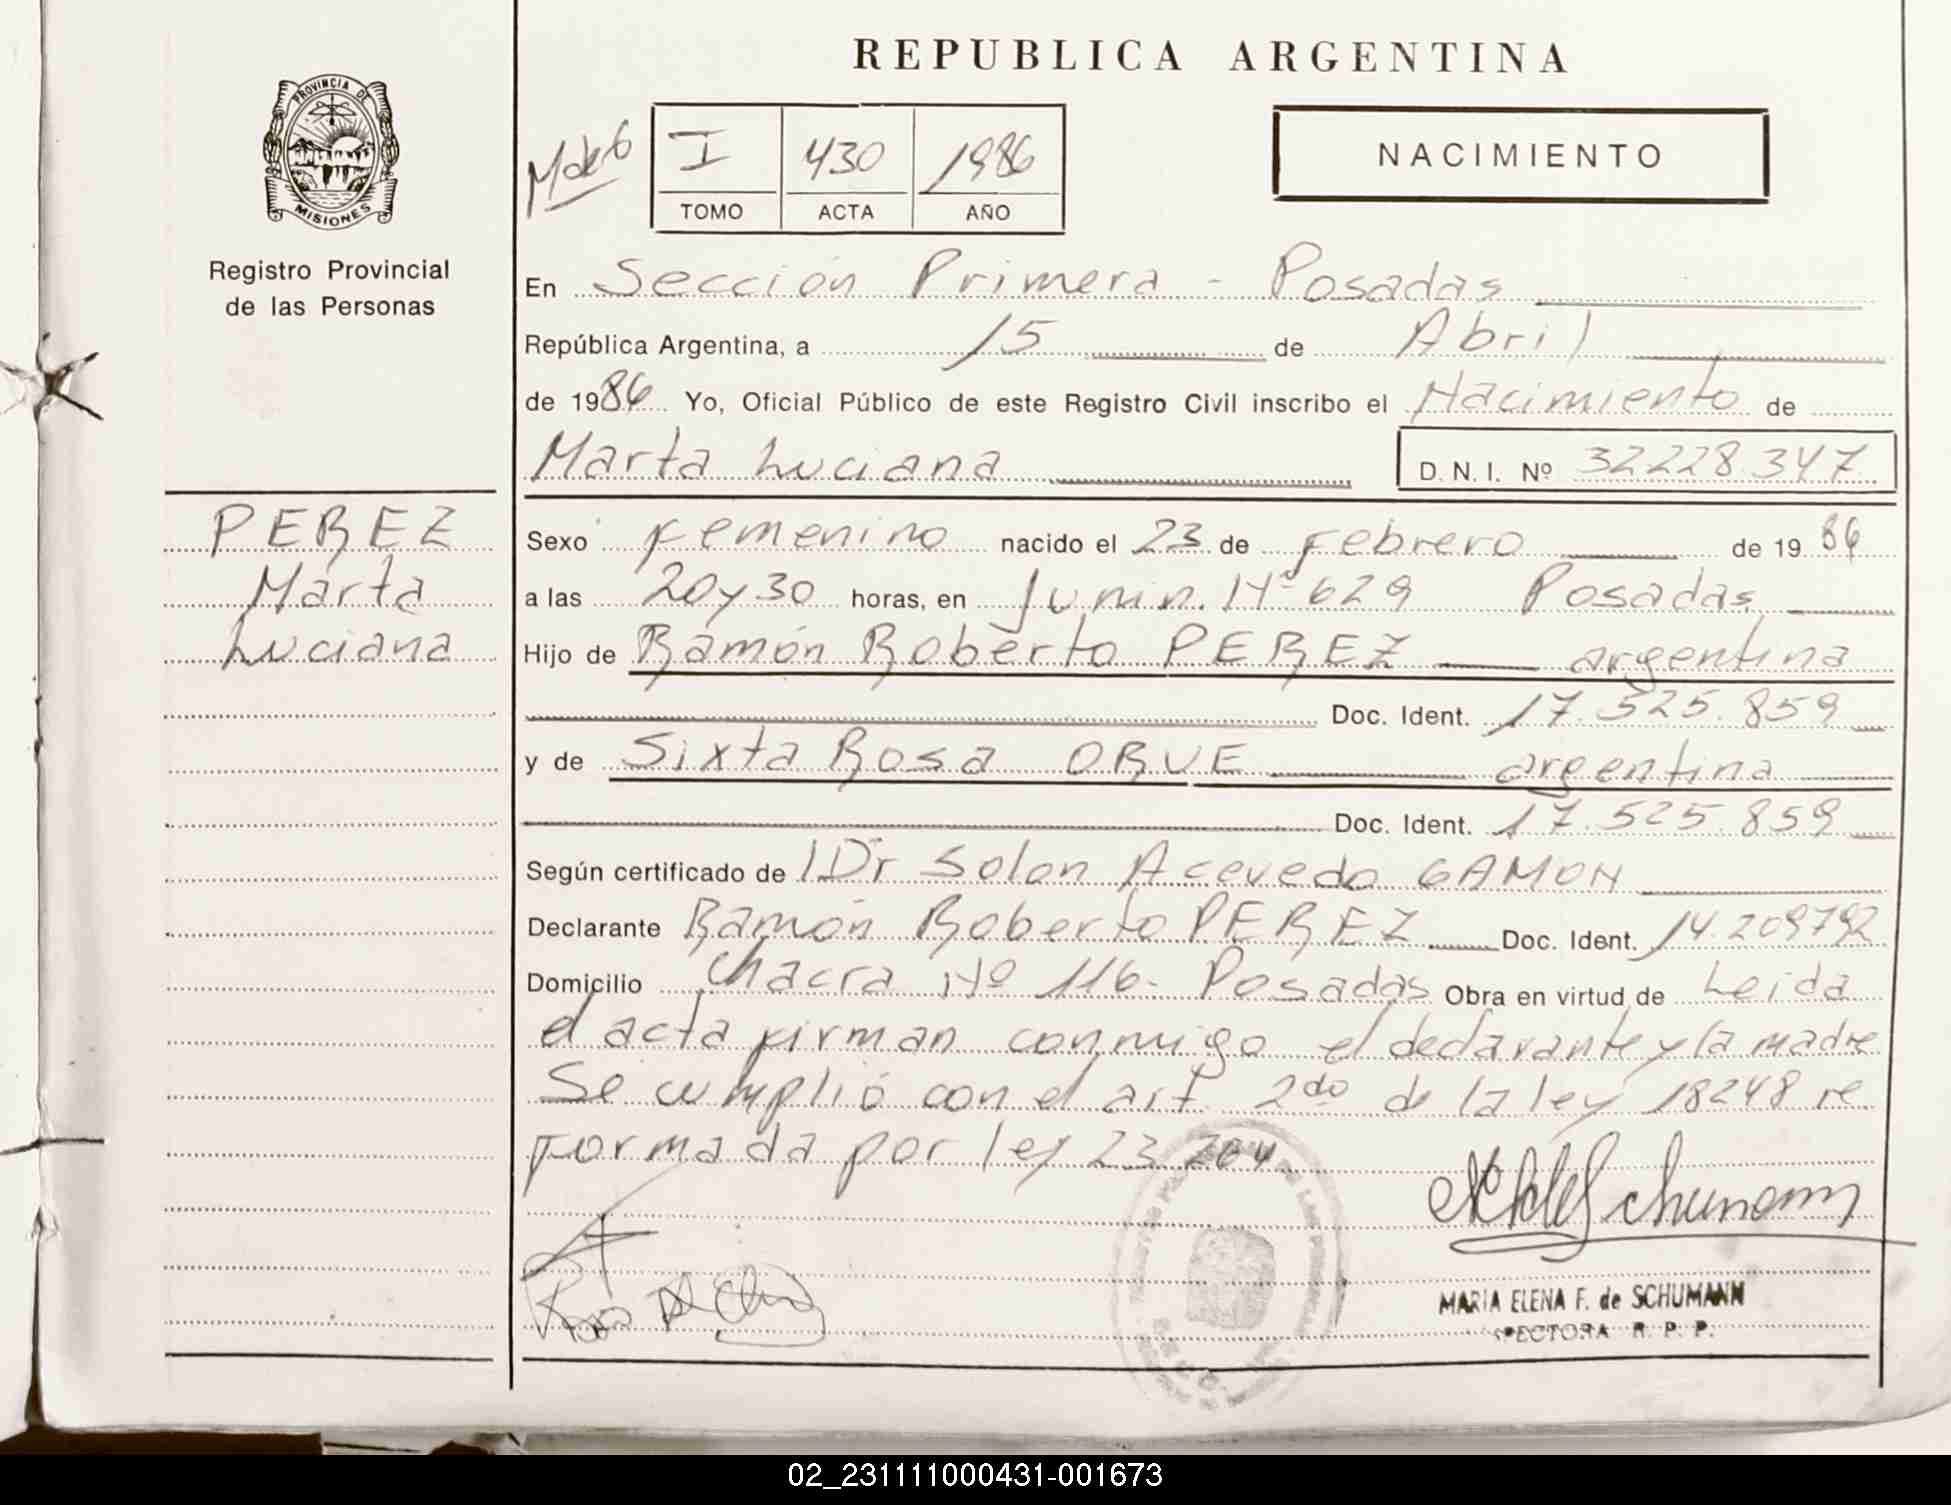 REPUBLICA ARGENTINA
PROVINCIA DE
MISIONES
Registro Provincial
de las Personas
I 430 1986
TOMO ACTA AÑO
NACIMIENTO
En Sección Primera - Posadas
República Argentina, a 15 de Abril
de 1986 Yo, Oficial Público de este Registro Civil inscribo el Nacimiento de
Marta Luciana D.N.I. Nº 32228.347
PEREZ
Marta
Luciana
Sexo Femenino nacido el 23 de Febrero de 1986
a las 20y30 horas, en Junin Nº 629 Posadas
Hijo de Ramón Roberto PEREZ argentina
Doc. Ident. 17.525.859
y de Sixta Rosa ORUE argentina
Doc. Ident. 17.525.859
Según certificado de Dr Solon Acevedo GAMON
Declarante Ramón Roberto PEREZ Doc. Ident. 14.209792
Domicilio Chacra Nº 116- Posadas Obra en virtud de Leida
el acta firman conmigo el declarante y la madre
Se cumplió con el art 2do de la ley 18248 re
formada por ley 23 264
MARIA ELENA F. de SCHUMANN
R. P. P.
02_231111000431-001673